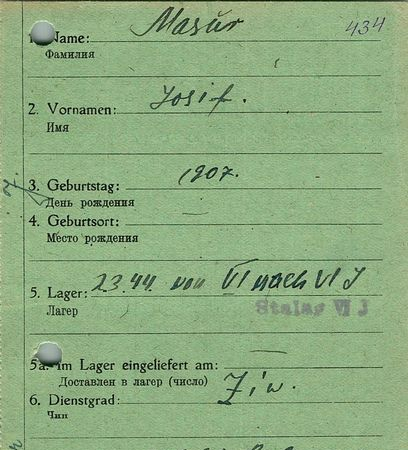 434
1. Name: Masur
Фамилия
2. Vornamen: Josif.
Имя
3. Geburtstag: 1907.
День рождения
4. Geburtsort:
Место рождения
5. Lager: 2.3.44. von VI nach VI J
Лагер
Stalag VI J
5a. Im Lager eingeliefert am:
Доставлен в лагер (число)
6. Dienstgrad: Ziv.
Чин